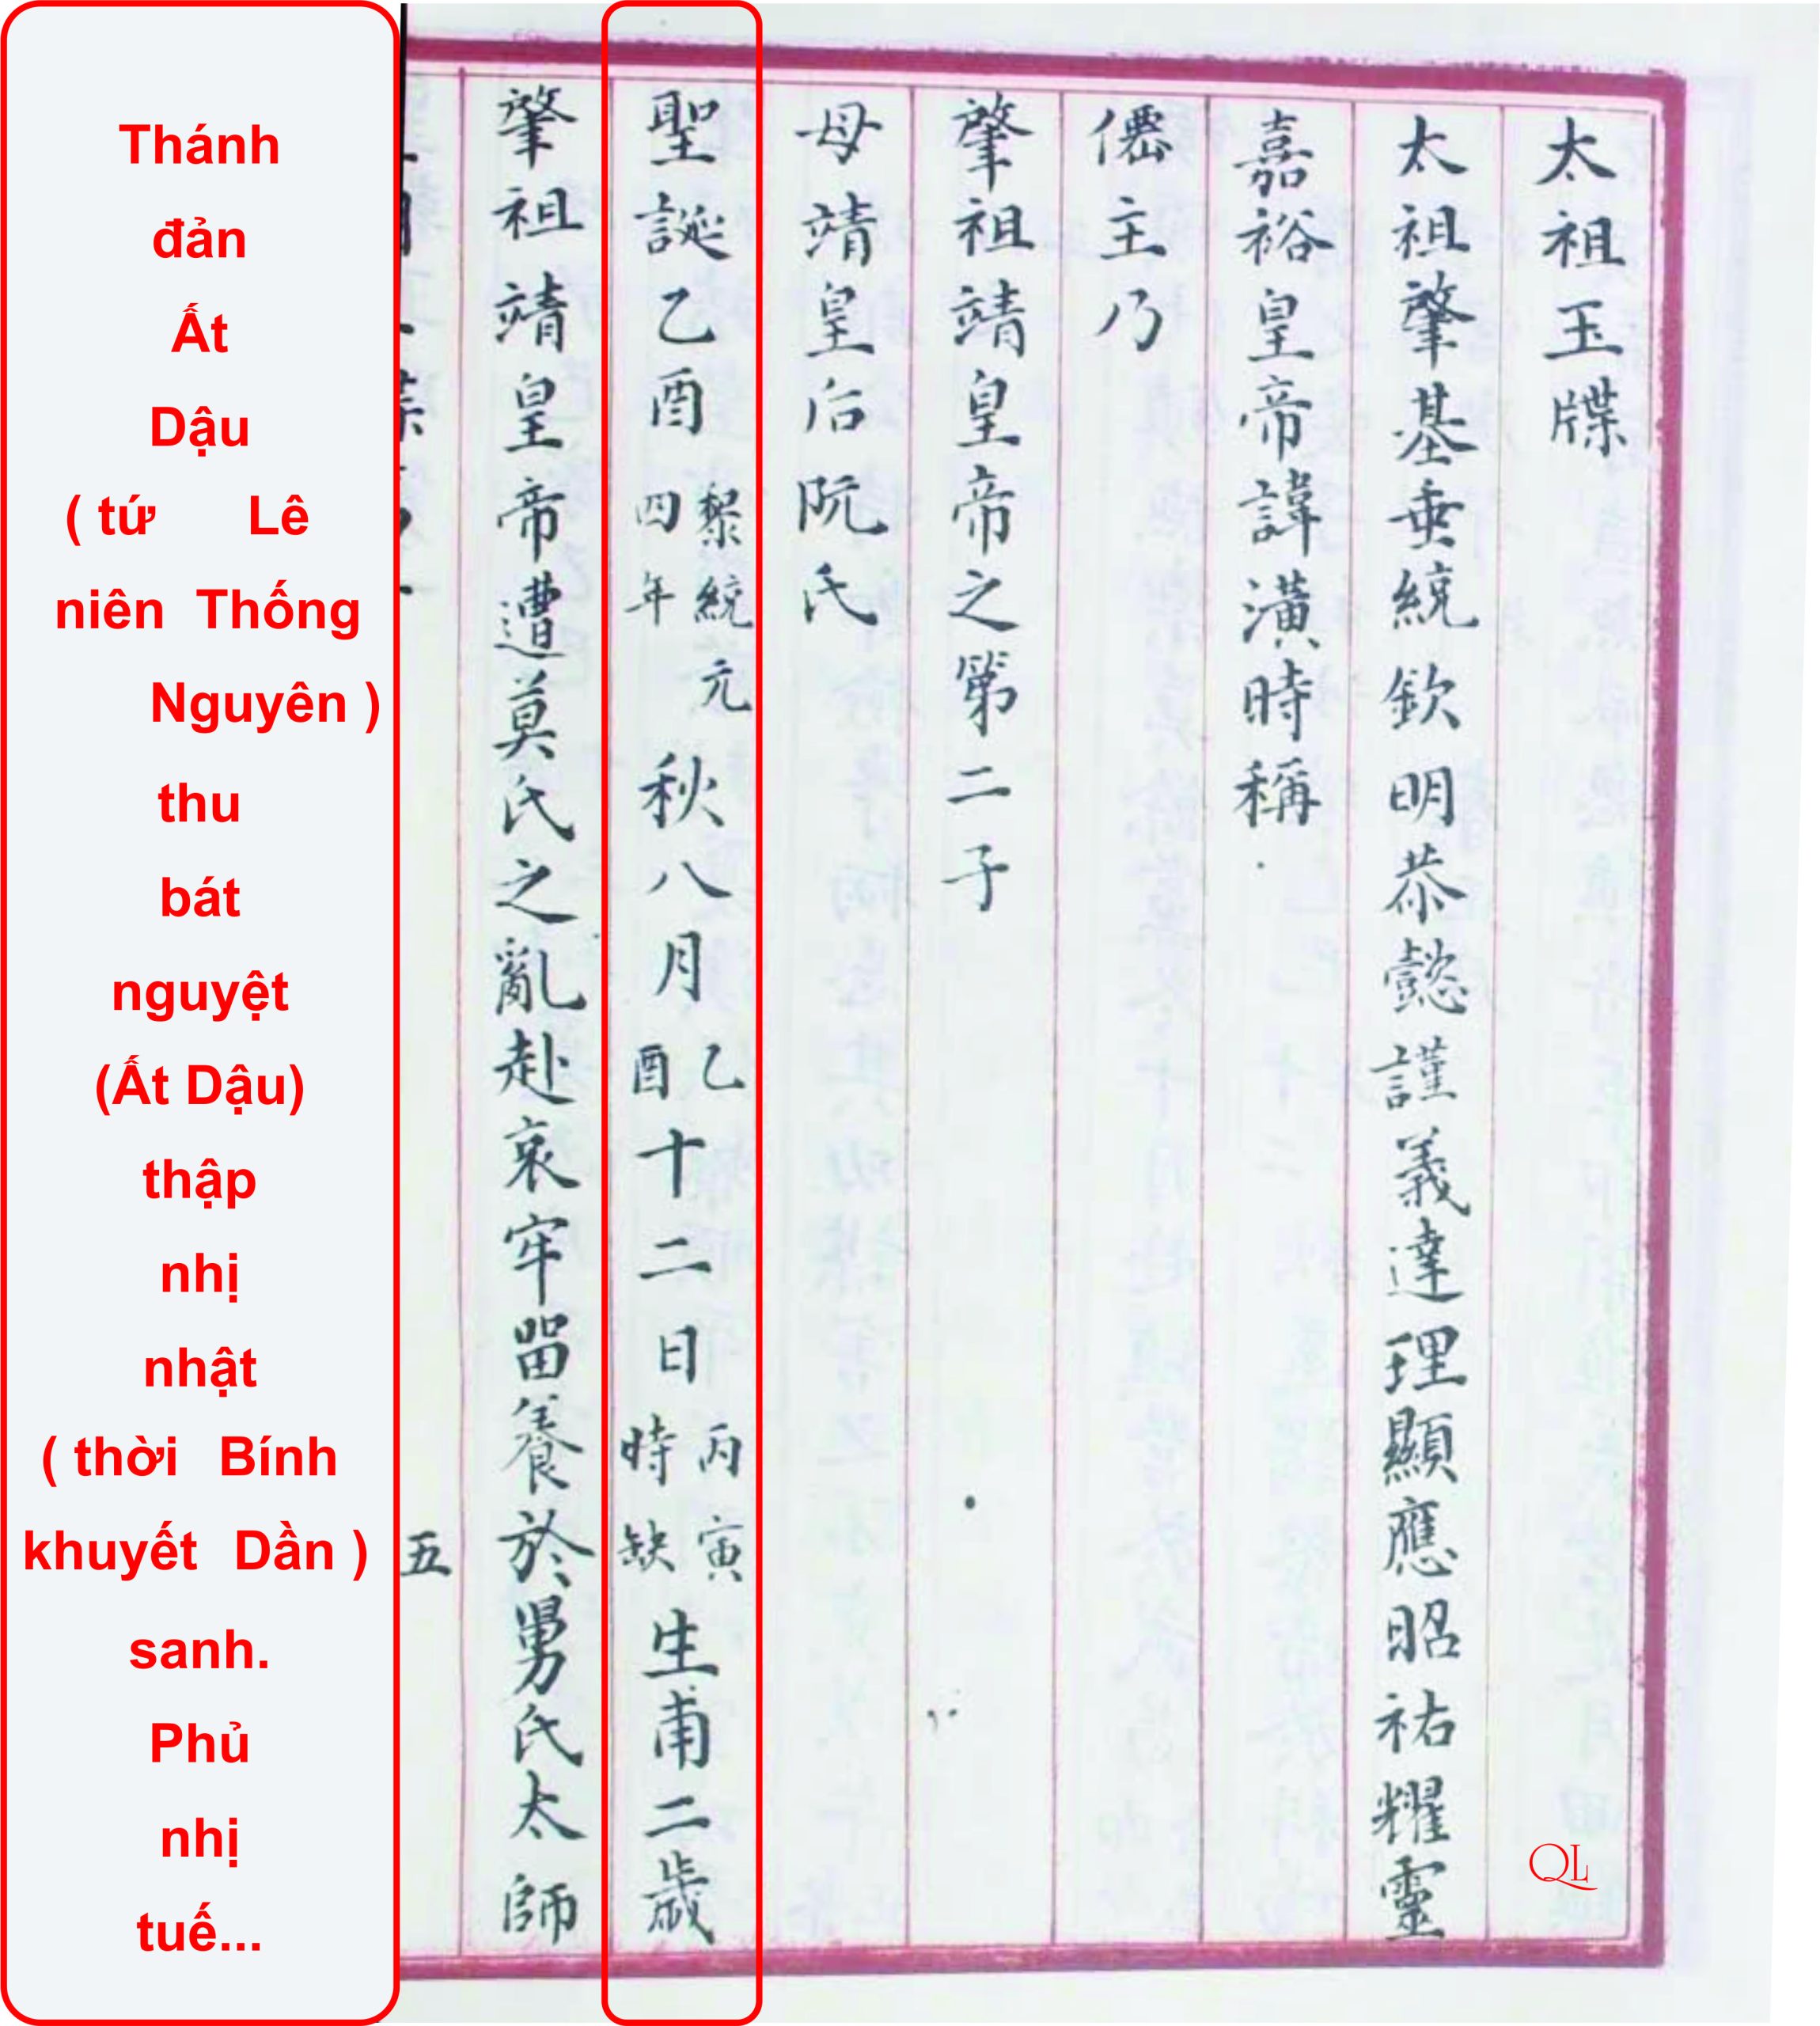 太祖玉牒
太祖肇基垂統欽明恭懿謹義達理顯應昭祐耀靈
嘉裕皇帝諱潢時稱
僊主乃
肇祖靖皇帝之第二子
母靖皇后阮氏
聖誕乙酉黎統元四年秋八月乙酉十二日丙寅時缺生甫二歲
肇祖靖皇帝遭莫氏之亂赴哀牢畱養於舅氏太師
五
Thánh
đản
Ất
Dậu
( tứ Lê
niên Thống
Nguyên )
thu
bát
nguyệt
(Ất Dậu)
thập
nhị
nhật
( thời Bính
khuyết Dần )
sanh.
Phủ
nhị
tuế...
QL